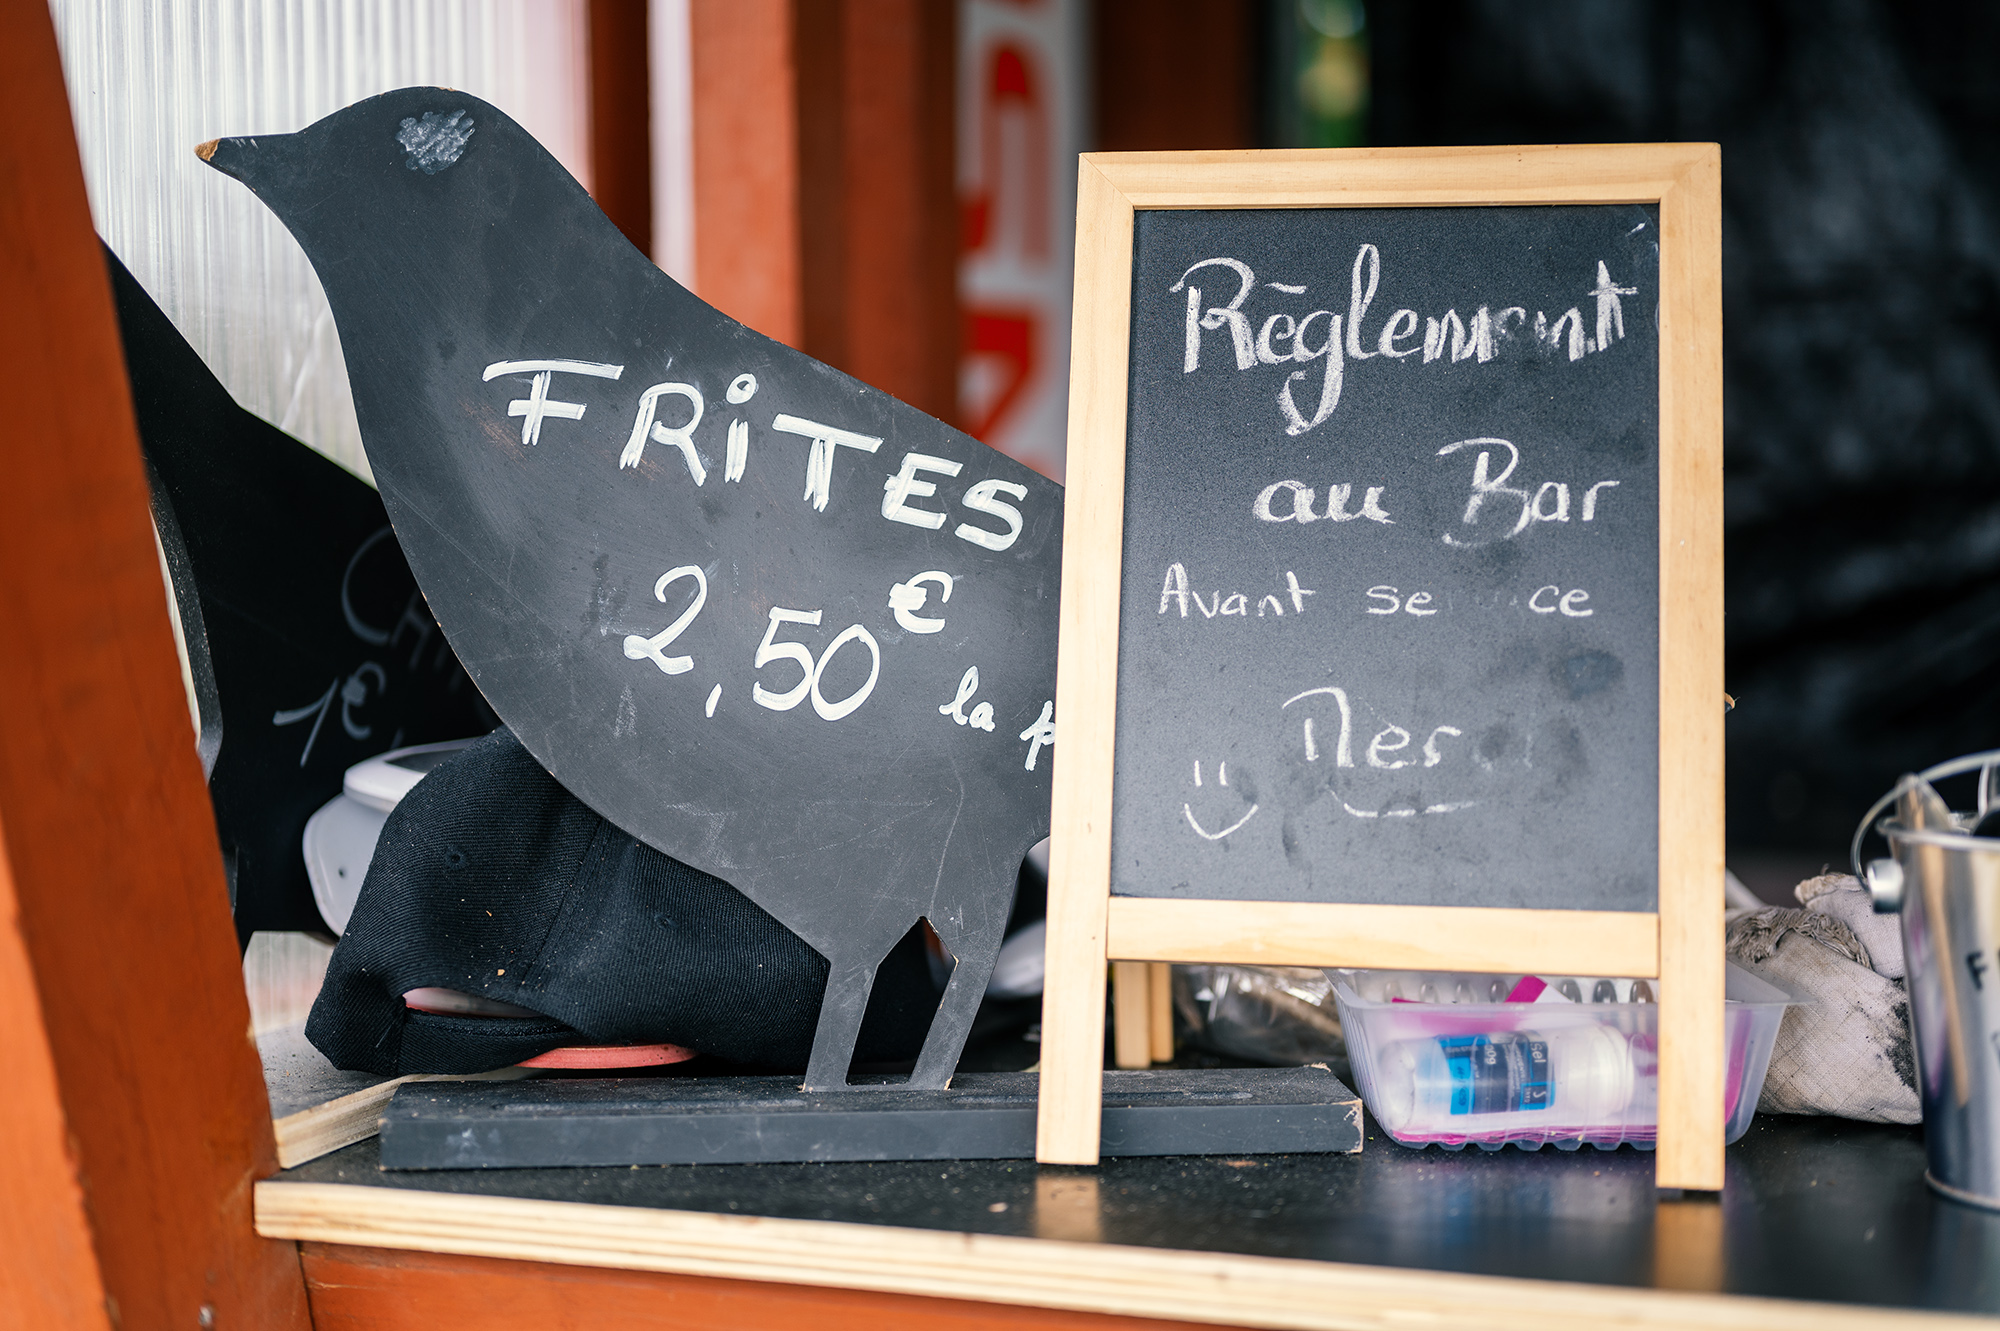 FRiTES
2,50€ la p
Règlement
au Bar
Avant se ce
Mer
1€